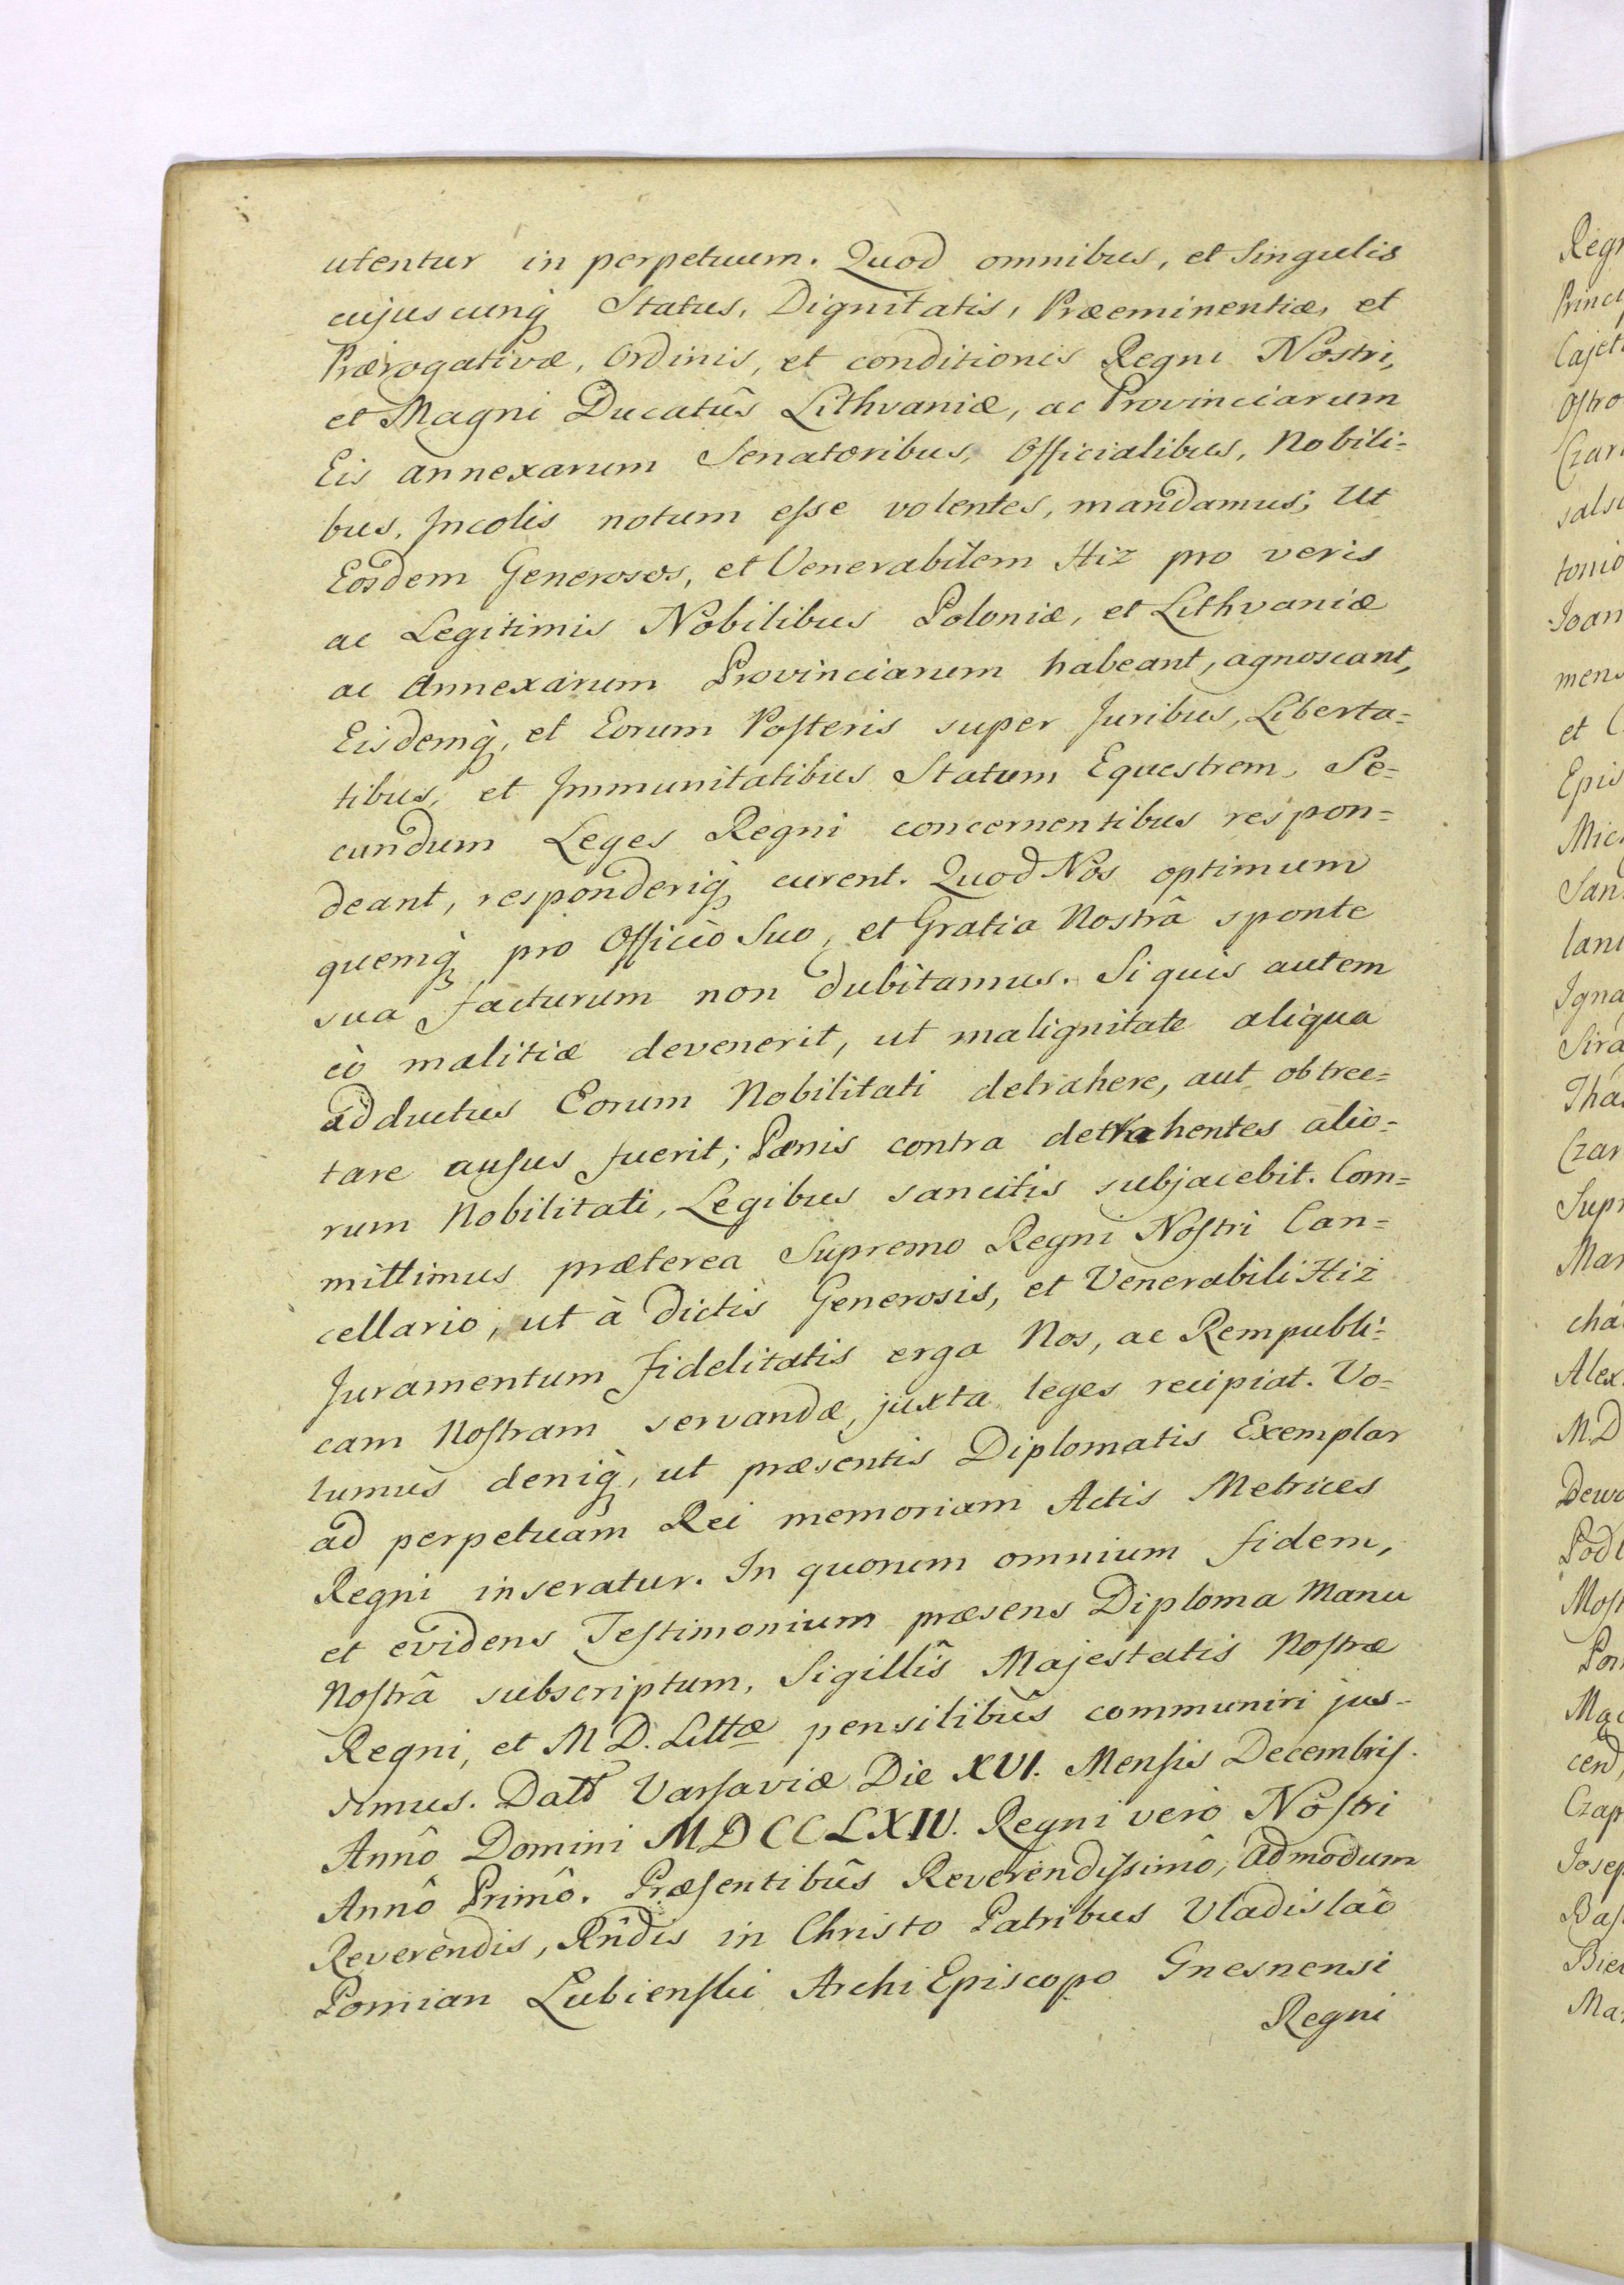 utentur in perpetuum. Quod omnibus, et Singulis
cujuscunq̀ Status, Dignitatis, Præeminentiæ, et
Prærogativæ, Ordinis, et conditionis Regni Nostri,
et Magni Ducatûs Lithvaniæ, ac Provinciarum
Eis annexarum Senatoribus, Officialibus, Nobili=
bus, Incolis notum eſse volentes, mandamus; Ut
Eosdem Generosos, et Venerabilem Hiz pro veris
ac Legitimis Nobilibus Poloniæ, et Lithvaniæ
ac Annexarum Provinciarum habeant, agnoscant,
Eisdemq̀, et Eorum Poſteris super Juribus, Liberta=
tibus, et Immunitatibus Statum Equestrem, Se=
cundum Leges Regni concernentibus respon=
deant, responderiq̀ curent. Quod Nos optimum
quemq̀ pro Officiò Suo, et Gratia Nostrâ sponte
sua facturum non dubitamus. Si quis autem
eò malitiæ devenerit, ut malignitate aliqua
adductus Eorum Nobilitati detrahere, aut obtrec=
tare auſus fuerit; Pænis contra detrahentes alio=
rum Nobilitati, Legibus sancitis subjacebit. Com=
mittimus præterea Supremo Regni Noſtri Can=
cellario, ut à dictis Generosis, et Venerabili Hiż
Juramentum fidelitatis erga Nos, ac Rempubli=
cam Noſtram servandæ, juxta leges recipiat. Vo=
lumus deniq̀, ut præsentis Diplomatis Exemplar
ad perpetuam Rei memoriam Actis Metrices
Regni inseratur. In quorum omnium fidem,
et evidens Teſtimonium præsens Diploma Manu
Noſtrâ subscriptum, Sigillis Majestatis Noſtræ
Regni, et M D. Littæ pensilibus communiri jus=
simus. Datt Varſaviæ Die XVI. Menſis Decembriſ.
Annô Domini MDCCLXIV. Regni verò Noſtri
Annô Primô. Præſentibus Reverendiſsimô, Admodum
Reverendis, Rndis in Christo Patribus Vladislaô
Pomian Lubienſki Archi Episcopo Gnesnensi
Regni
Regn
Princi
Cajet
Oſtro
Czar
salsc
tonio
Joan
mens
et C
Epis
Mic
San
lani
Igna
Sira
Tha
Czar
Supr
Mar
cha
Alex
M.D
Dewo
Podl
Moſt
Pon
Mac
cend,
Czap
Josep
Baſ
Bie
Mar